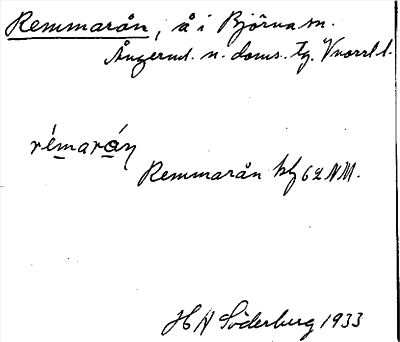 Remmarån, å i Björna sn.
Ångerml. n. doms. tg. Vnorrl l.
rémarán
Remmarån kbl 62 NM.
H A Söderburg 1933